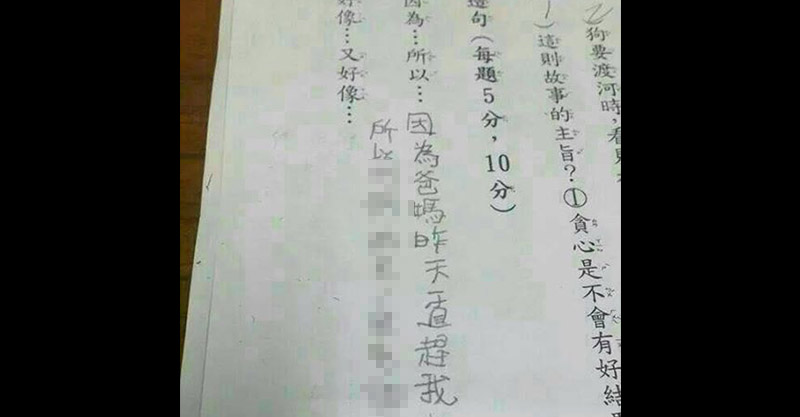 狗要渡河時，看見
)這則故事的主旨？①貪心是不會有好結
造句(每題5分，10分)
因為…所以…因為爸媽昨天一直趕我
所以
好像…又好像…